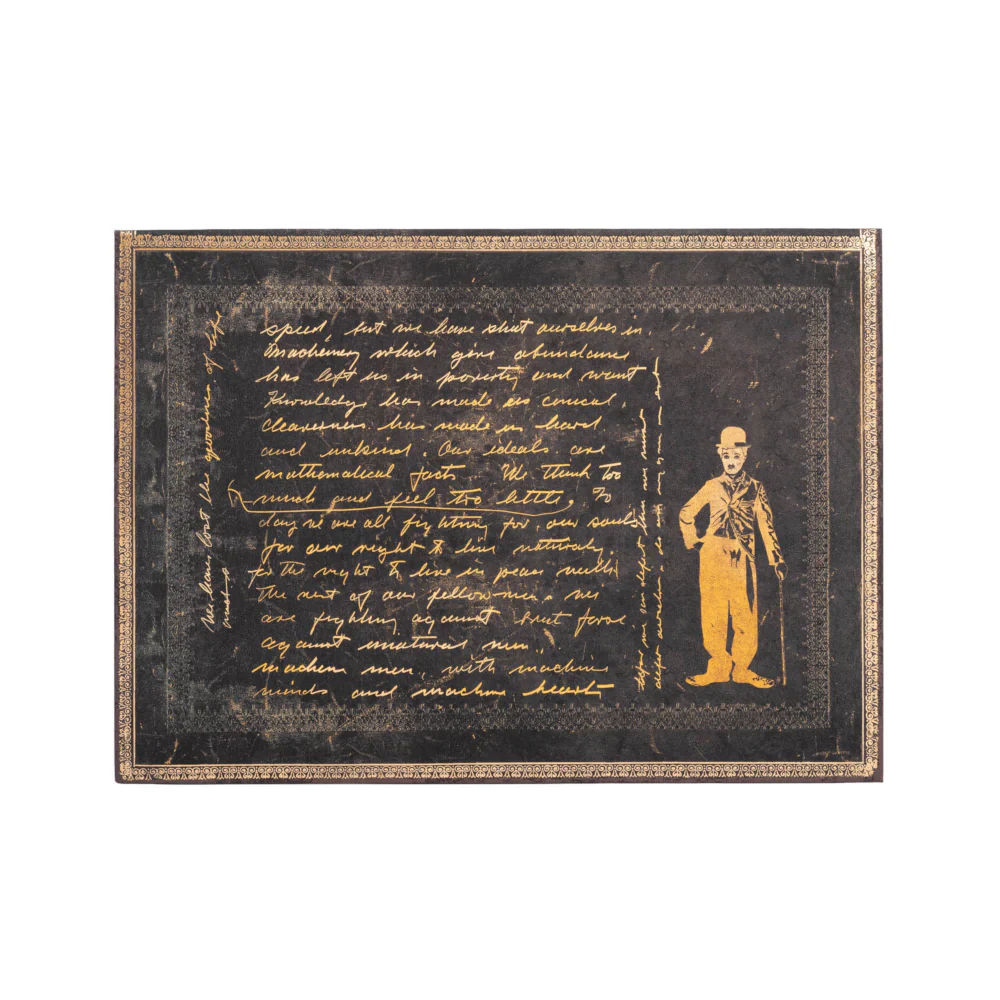 We have lost the
speed, but we have shut ourselves in.
Machinery which give abundance
has left us in poverty and want
Knowledge has made us cynical,
cleaverness has made us hard
and unkind. Our ideals are
mathematical facts We think too
much and feel too little. To
day we are all fighting for our souls
for our right to live naturaly.
for the right to live in peace with
the rest of our fellow men. We
are fighting against brut force
against unatural men.
machine men, with machine
minds and machine hearts